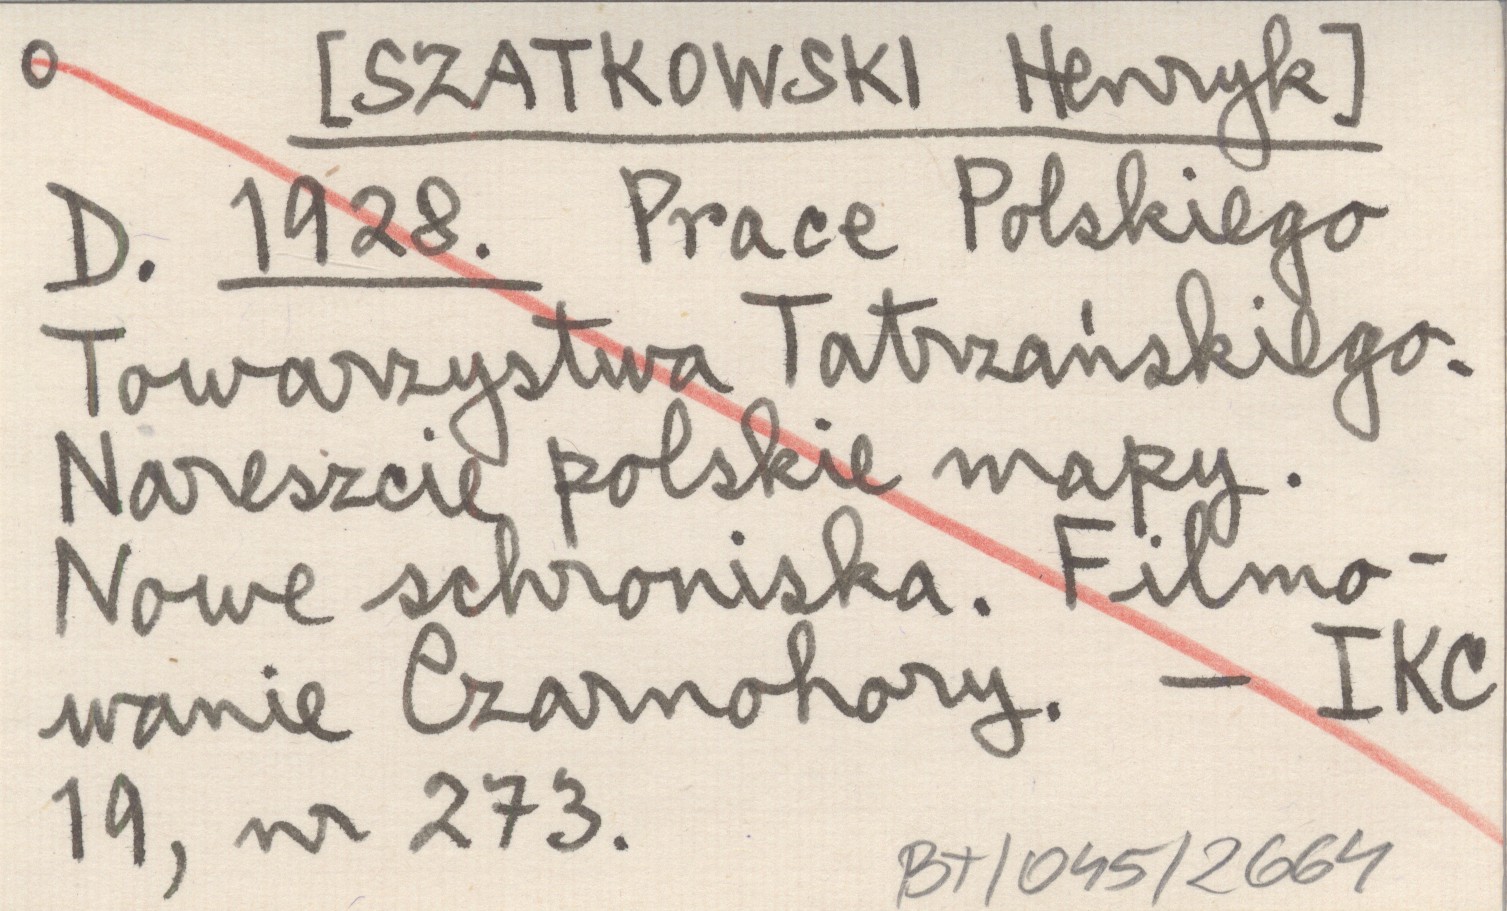 o [SZATKOWSKI Henryk]
D. 1928. Prace Polskiego
Towarzystwa Tatrzańskiego.
Nareszcie polskie mapy.
Nowe schroniska. Filmo-
wanie Czarnohory. — IKC
19, nr 273.
BT/045/2664